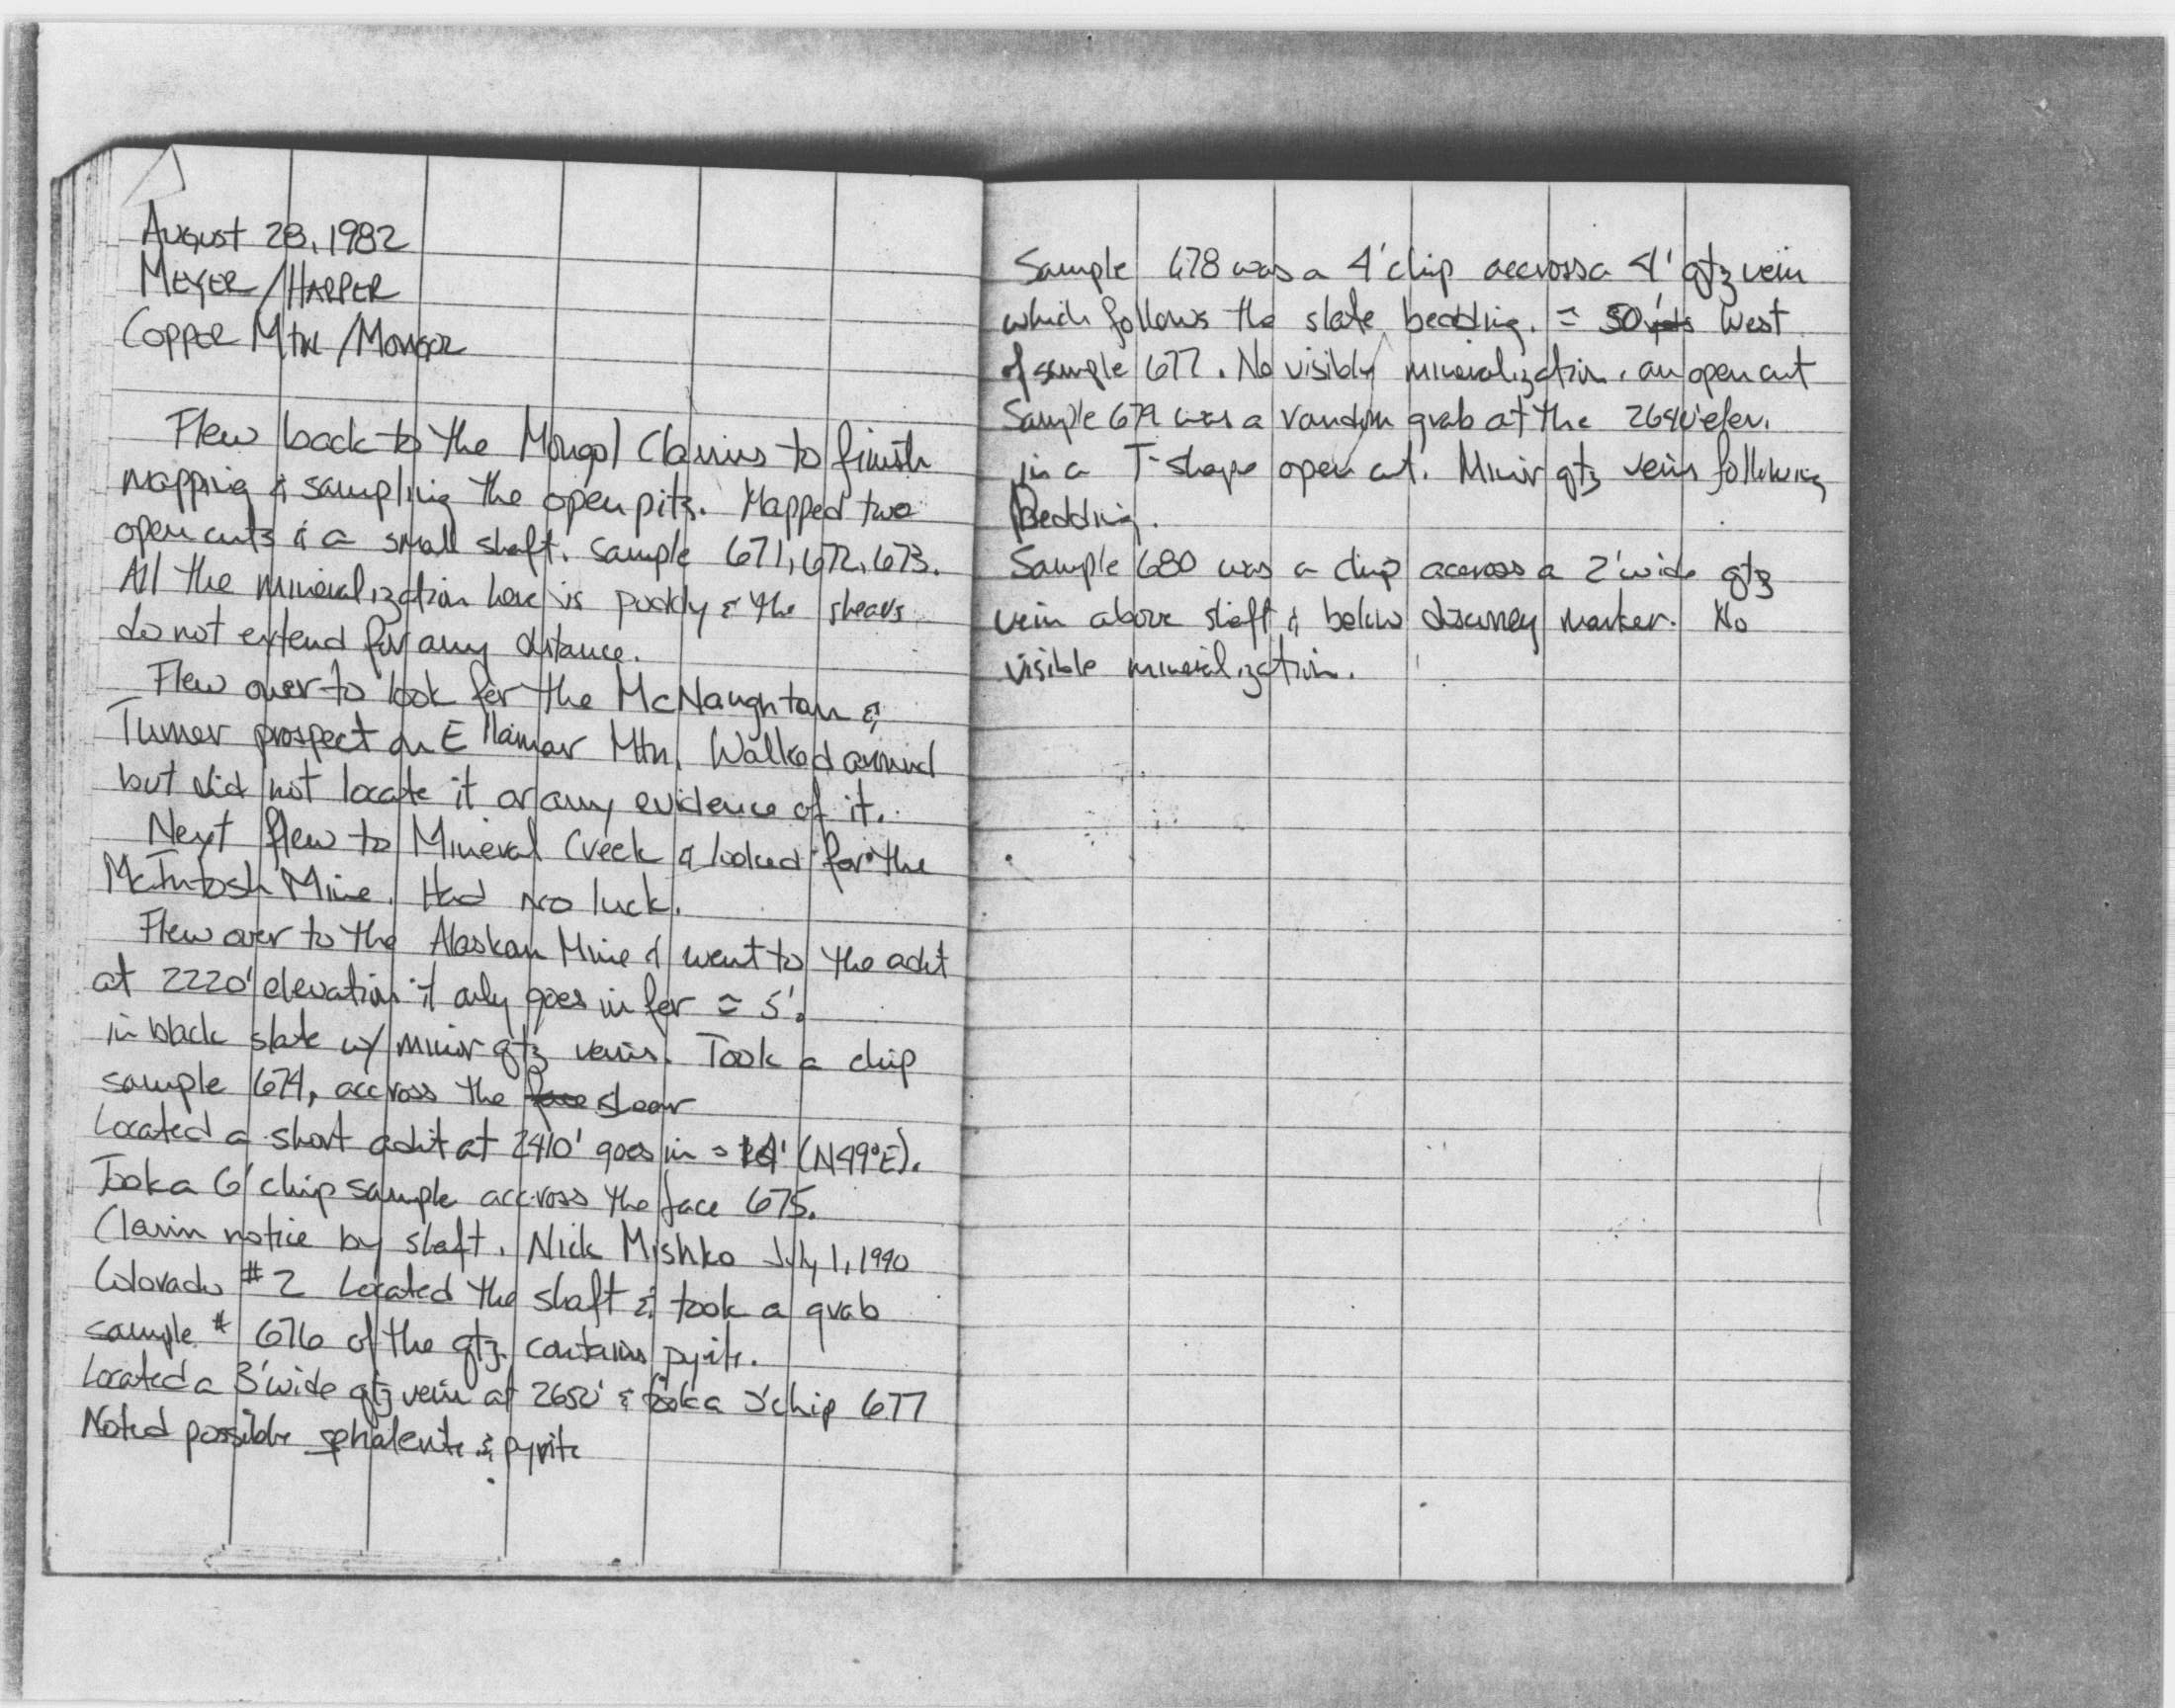 August 28, 1982
MEYER/HARPER
COPPER MTN/MONGOL
Flew back to the Mongol Claims to finish
mapping & sampling the open pits. Mapped two
open cuts & a small shaft. Sample 671, 672, 673.
All the mineralization here is poddy & the shears
do not extend for any distance.
Flew over to look for the McNaughton &
Turner prospect on Ellamar Mtn. Walked around
but did not locate it or any evidence of it.
Next flew to Mineral Creek & looked for the
McIntosh Mine. Had no luck.
Flew over to the Alaskan Mine & went to the adit
at 2220' elevation it only goes in for ≈ 5'.
in black slate w/ minor qtz veins. Took a chip
sample 674, accross the face shear
Located a short adit at 2410' goes in ≈ (N49°E).
Took a 6' chip sample accross the face 675.
Claim notice by shaft. Nick Mishko July 1, 1940
Colorado #2 Located the shaft & took a grab
sample # 676 of the qtz. contains pyrite.
Located a 3' wide qtz vein at 2650' & took a 3' chip 677
Noted possible sphalerite & pyrite
Sample 678 was a 4' chip accross a 4' qtz vein
which follows the slate bedding. ≈ 50' yds West
of sample 677. No visibly mineralization, an open cut
Sample 679 was a random grab at the 2640' elev.
in a T-shape open cut. Minor qtz veins following
Bedding.
Sample 680 was a chip accross a 2' wide qtz
vein above shaft & below discovery marker. No
visible mineralization.